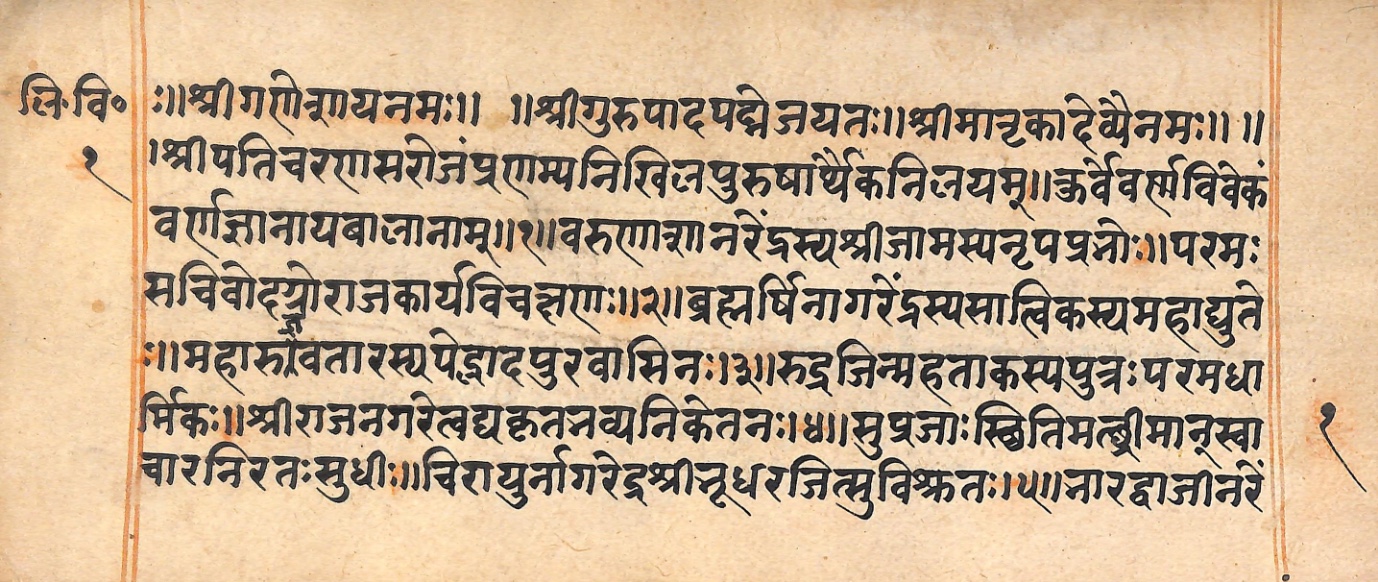 लि॰वि॰
१
ः॥श्रीगणेशायनमः॥ ॥श्रीगुरुपादपद्मेजयतः॥श्रीमातृकादेव्यैनमः॥ ॥
।श्रीपतिचरणसरोजंप्रणम्यनिखिलपुरुषार्थैकनिलयम्॥कुर्वेवर्णविवेकं
वर्णज्ञानायबालानाम्॥१॥वरुणाशानरेंद्रस्यश्रीजामस्यनृपप्रभोः॥परमः
सचिवोदक्षोराजकार्यविचक्षणः॥२॥ब्रह्मर्षिनागरेंद्रस्यसात्विकस्यमहाद्युते
ः॥महारुद्रावतारस्यपेद्लादपुरवासिनः॥३॥रुद्रजिन्महताकस्यपुत्रःपरमधा
र्मिकः॥श्रीराजनगरेत्वद्यकृतनव्यनिकेतनः॥४॥सुप्रजाःस्थितिमत्छ्रीमान्स्वा
चारनिरतःसुधीः॥चिरायुर्नागरेंद्रश्रीभूधरजित्सुविश्रुतः॥५॥भारद्वाजीनरें
१